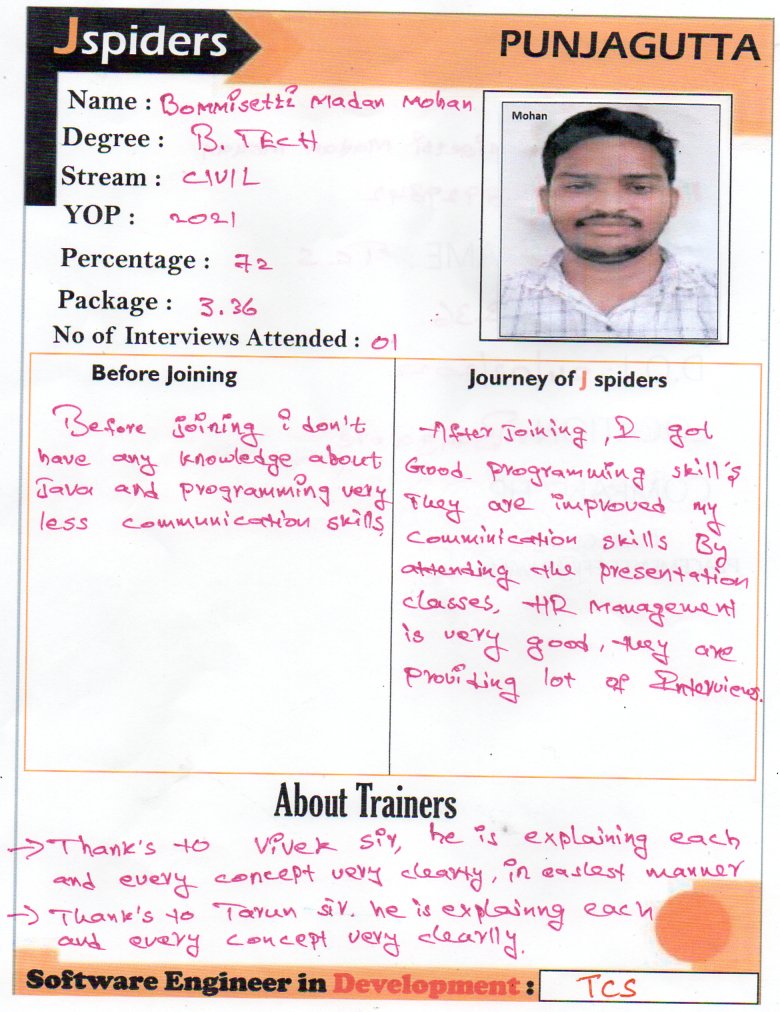 Jspiders
PUNJAGUTTA
Name : Bommisetti Madan Mohan
Degree : B. TECH
Stream : CIVIL
YOP : 2021
Percentage : 72
Package : 3.36
No of Interviews Attended : 01
Mohan
Before Joining
Before joining i don't
have any knowledge about
Java and programming very
less communication skills
Journey of J spiders
After joining, I got
Good programming skill's
They are improved my
Comminication skills By
attending the presentation
classes, HR Management
is very good, they are
providing lot of Interviews.
About Trainers
→ Thank's to Vivek Sir, he is explaining each
and every concept very clearly, in easiest manner
→ Thank's to Tarun sir. he is explainng each
and every concept very clearlly.
Software Engineer in Development : TCS